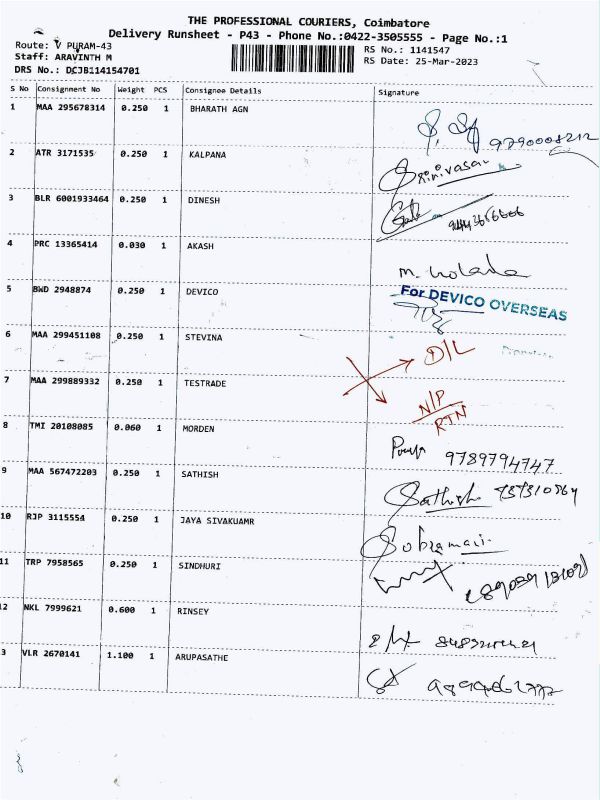 THE PROFESSIONAL COURIERS, Coimbatore
Delivery Runsheet - P43 - Phone No.:0422-3505555 - Page No.:1
Route: V PURAM-43
RS No.: 1141547
Staff: ARAVINTH M
RS Date: 25-Mar-2023
DRS No.: DCJB114154701
S No Consignment No Weight PCS Consignee Details Signature
1 MAA 295678314 0.250 1 BHARATH AGN 9790008212
2 ATR 3171535 0.250 1 KALPANA Srinivasan
3 BLR 6001933464 0.250 1 DINESH
4 PRC 13365414 0.030 1 AKASH
5 BWD 2948874 0.250 1 DEVICO For DEVICO OVERSEAS
6 MAA 299451108 0.250 1 STEVINA D/L
7 MAA 299889332 0.250 1 TESTRADE N/P
RTN
8 TMI 20108085 0.060 1 MORDEN 9789794747
9 MAA 567472203 0.250 1 SATHISH Sathish
10 RJP 3115554 0.250 1 JAYA SIVAKUAMR
11 TRP 7958565 0.250 1 SINDHURI
2 NKL 7999621 0.600 1 RINSEY
3 VLR 2670141 1.100 1 ARUPASATHE